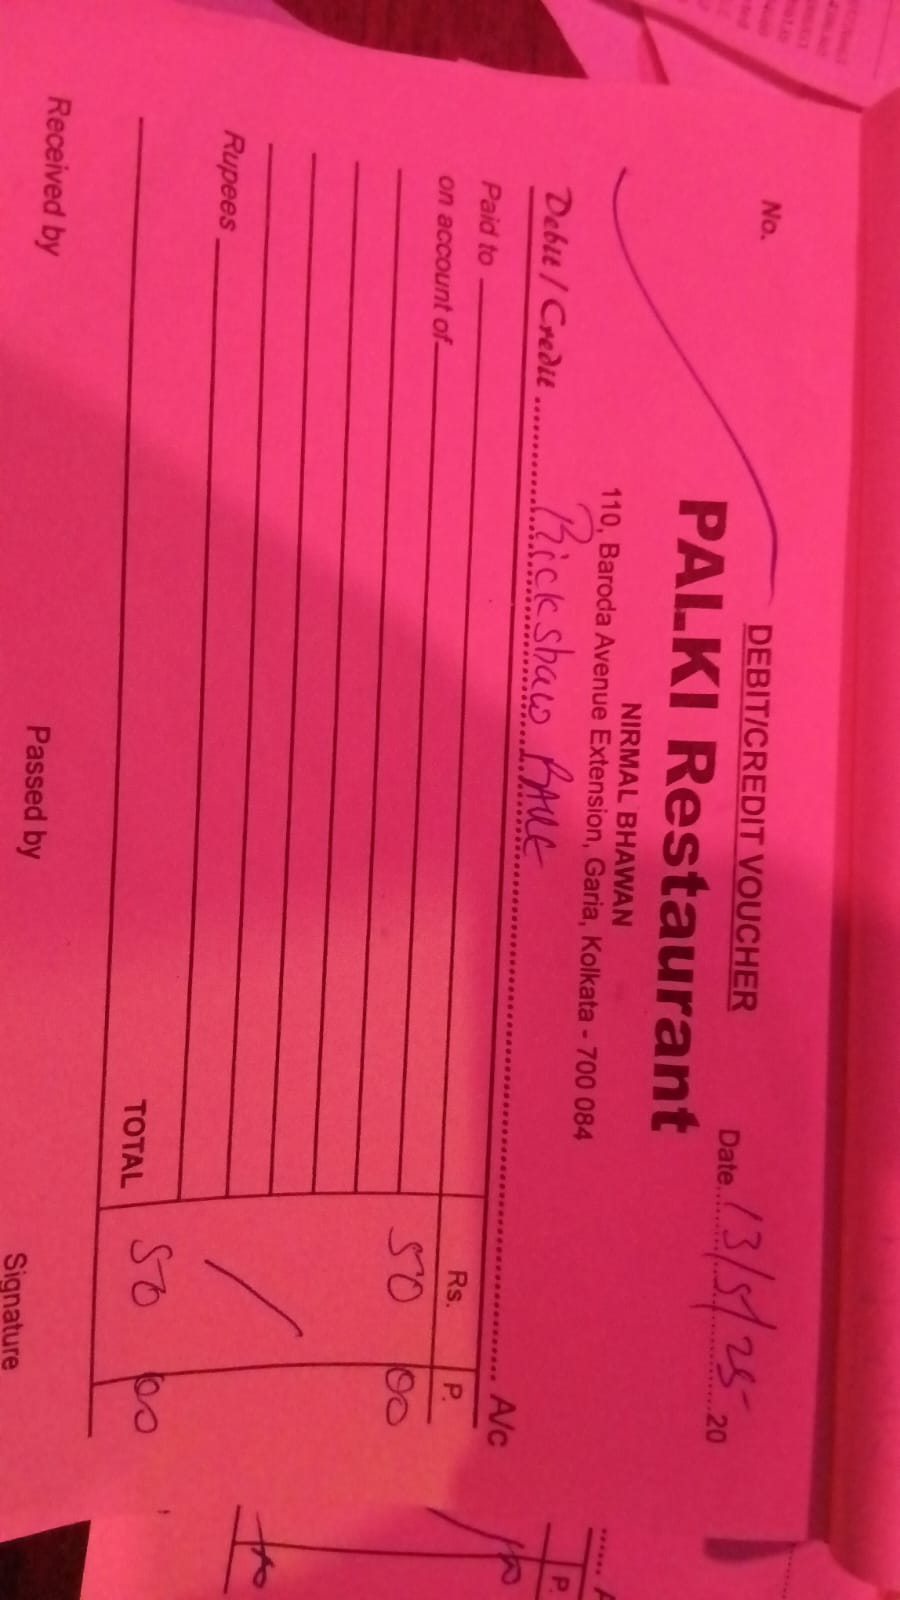 DEBIT/CREDIT VOUCHER
No.
Date 13/5/25 20
PALKI Restaurant
NIRMAL BHAWAN
110, Baroda Avenue Extension, Garia, Kolkata - 700 084
Debit / Credit Rickshaw A/c
Paid to Rs. P.
on account of 50 00
Rupees
TOTAL 50 00
Received by Passed by Signature